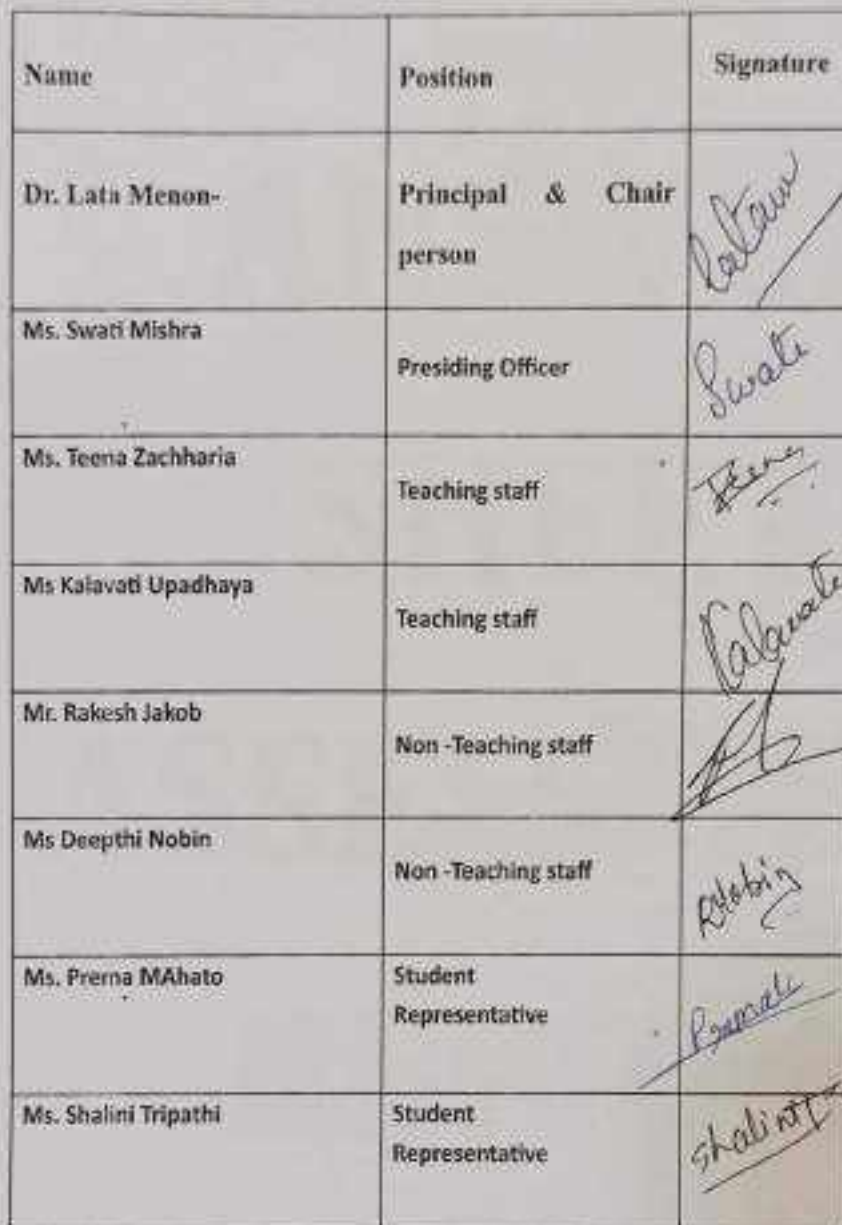 Name Position Signature
Dr. Lata Menon- Principal & Chair
person
Ms. Swati Mishra
Presiding Officer Swati
Ms. Teena Zachharia
Teaching staff Teena
Ms Kalavati Upadhaya
Teaching staff Kalavati
Mr. Rakesh Jakob
Non -Teaching staff
Ms Deepthi Nobin
Non -Teaching staff
Ms. Prerna MAhato Student
Representative
Ms. Shalini Tripathi Student
Representative